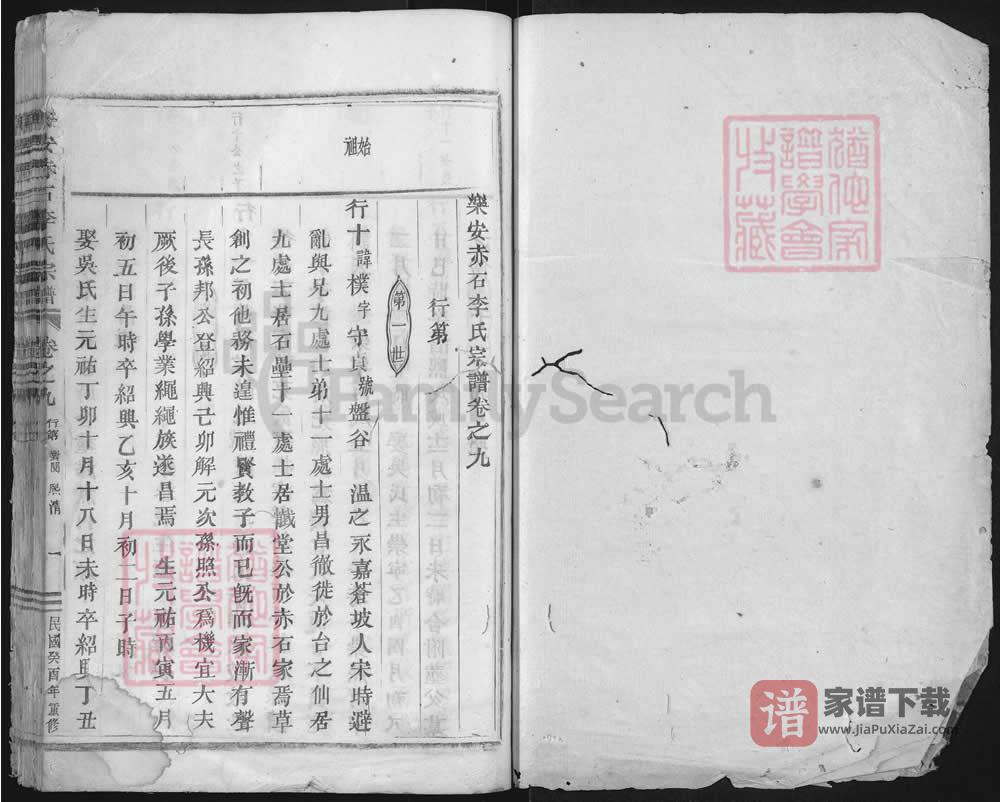 樂安赤石李氏宗譜卷之九
行第
第一世
始祖
行十諱樸字守貞號盤谷溫之永嘉蒼坡人宋時避
亂與兄九處士弟十一處士男昌徹徙於台之仙居
九處士居石壘十一處士居懺堂公於赤石家焉草
創之初他務未遑惟禮賢教子而已旣而家漸有聲
長孫邦公登紹興己卯解元次孫照公為機宜大夫
厥後子孫學業繩繩族遂昌焉 生元祐丙寅五月
初五日午時卒紹興乙亥十月初二日子時
娶吳氏生元祐丁卯十月十八日未時卒紹興丁丑
樂安赤石李氏宗譜 卷之九 行第 一 民國癸酉年重修
譜學會
FamilySearch
譜
家谱下载
www.JiaPuXiaZai.com